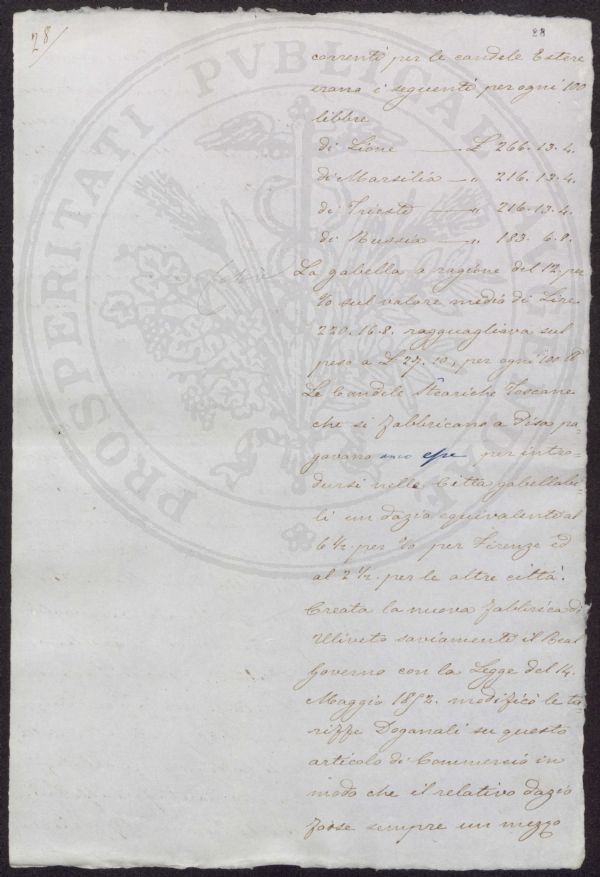 28/
28
correnti per le candele Estere
erano i seguenti per ogni 100
libbre
di Lione — £ 266.13.4.
di Marsilia — „ 216.13.4.
di Trieste — „ 216.13.4.
di Russia — „ 183.6.8.
La gabella a ragione del 12 per
% sul valore medio di Lire
220.16.8. ragguagliava sul
peso a £ 27.10, per ogni 100 lb
Le Candele Steariche Toscane
che si fabbricano a Pisa pa-
gavano esse per intro-
dursi nelle Città gabellabi-
li un dazio equivalente al
6 ½ per % per Firenze ed
al 2 ½ per le altre città.
Creata la nuova fabbrica di
Uliveto saviamente il Real
Governo con la Legge del 14.
Maggio 1852. modificò le ta-
riffe Doganali su questo
articolo di Commercio in
modo che il relativo dazio
fosse sempre un mezzo
PROSPERITATI PVBLICAE